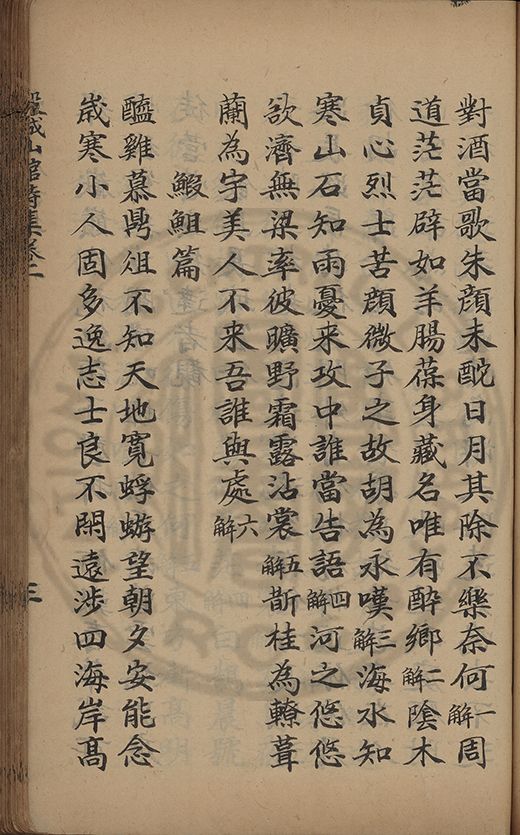 對酒當歌朱顔未酡日月其除不樂奈何一解周
道茫茫辟如羊腸葆身藏名唯有酔鄉二解陰木
貞心烈士苦顔微子之故胡為永嘆三解海水知
寒山石知雨憂来攻中誰當告語四解河之悠悠
欲濟無梁率彼曠野霜露沾裳五解斮桂為轑葺
蘭為宇美人不来吾誰與處六解
鰕䱇篇
醯雞慕鼎俎不知天地寛蜉蝣望朝夕安能念
歲寒小人固多逸志士良不閑遠涉四海岸高
山館詩集卷二
三